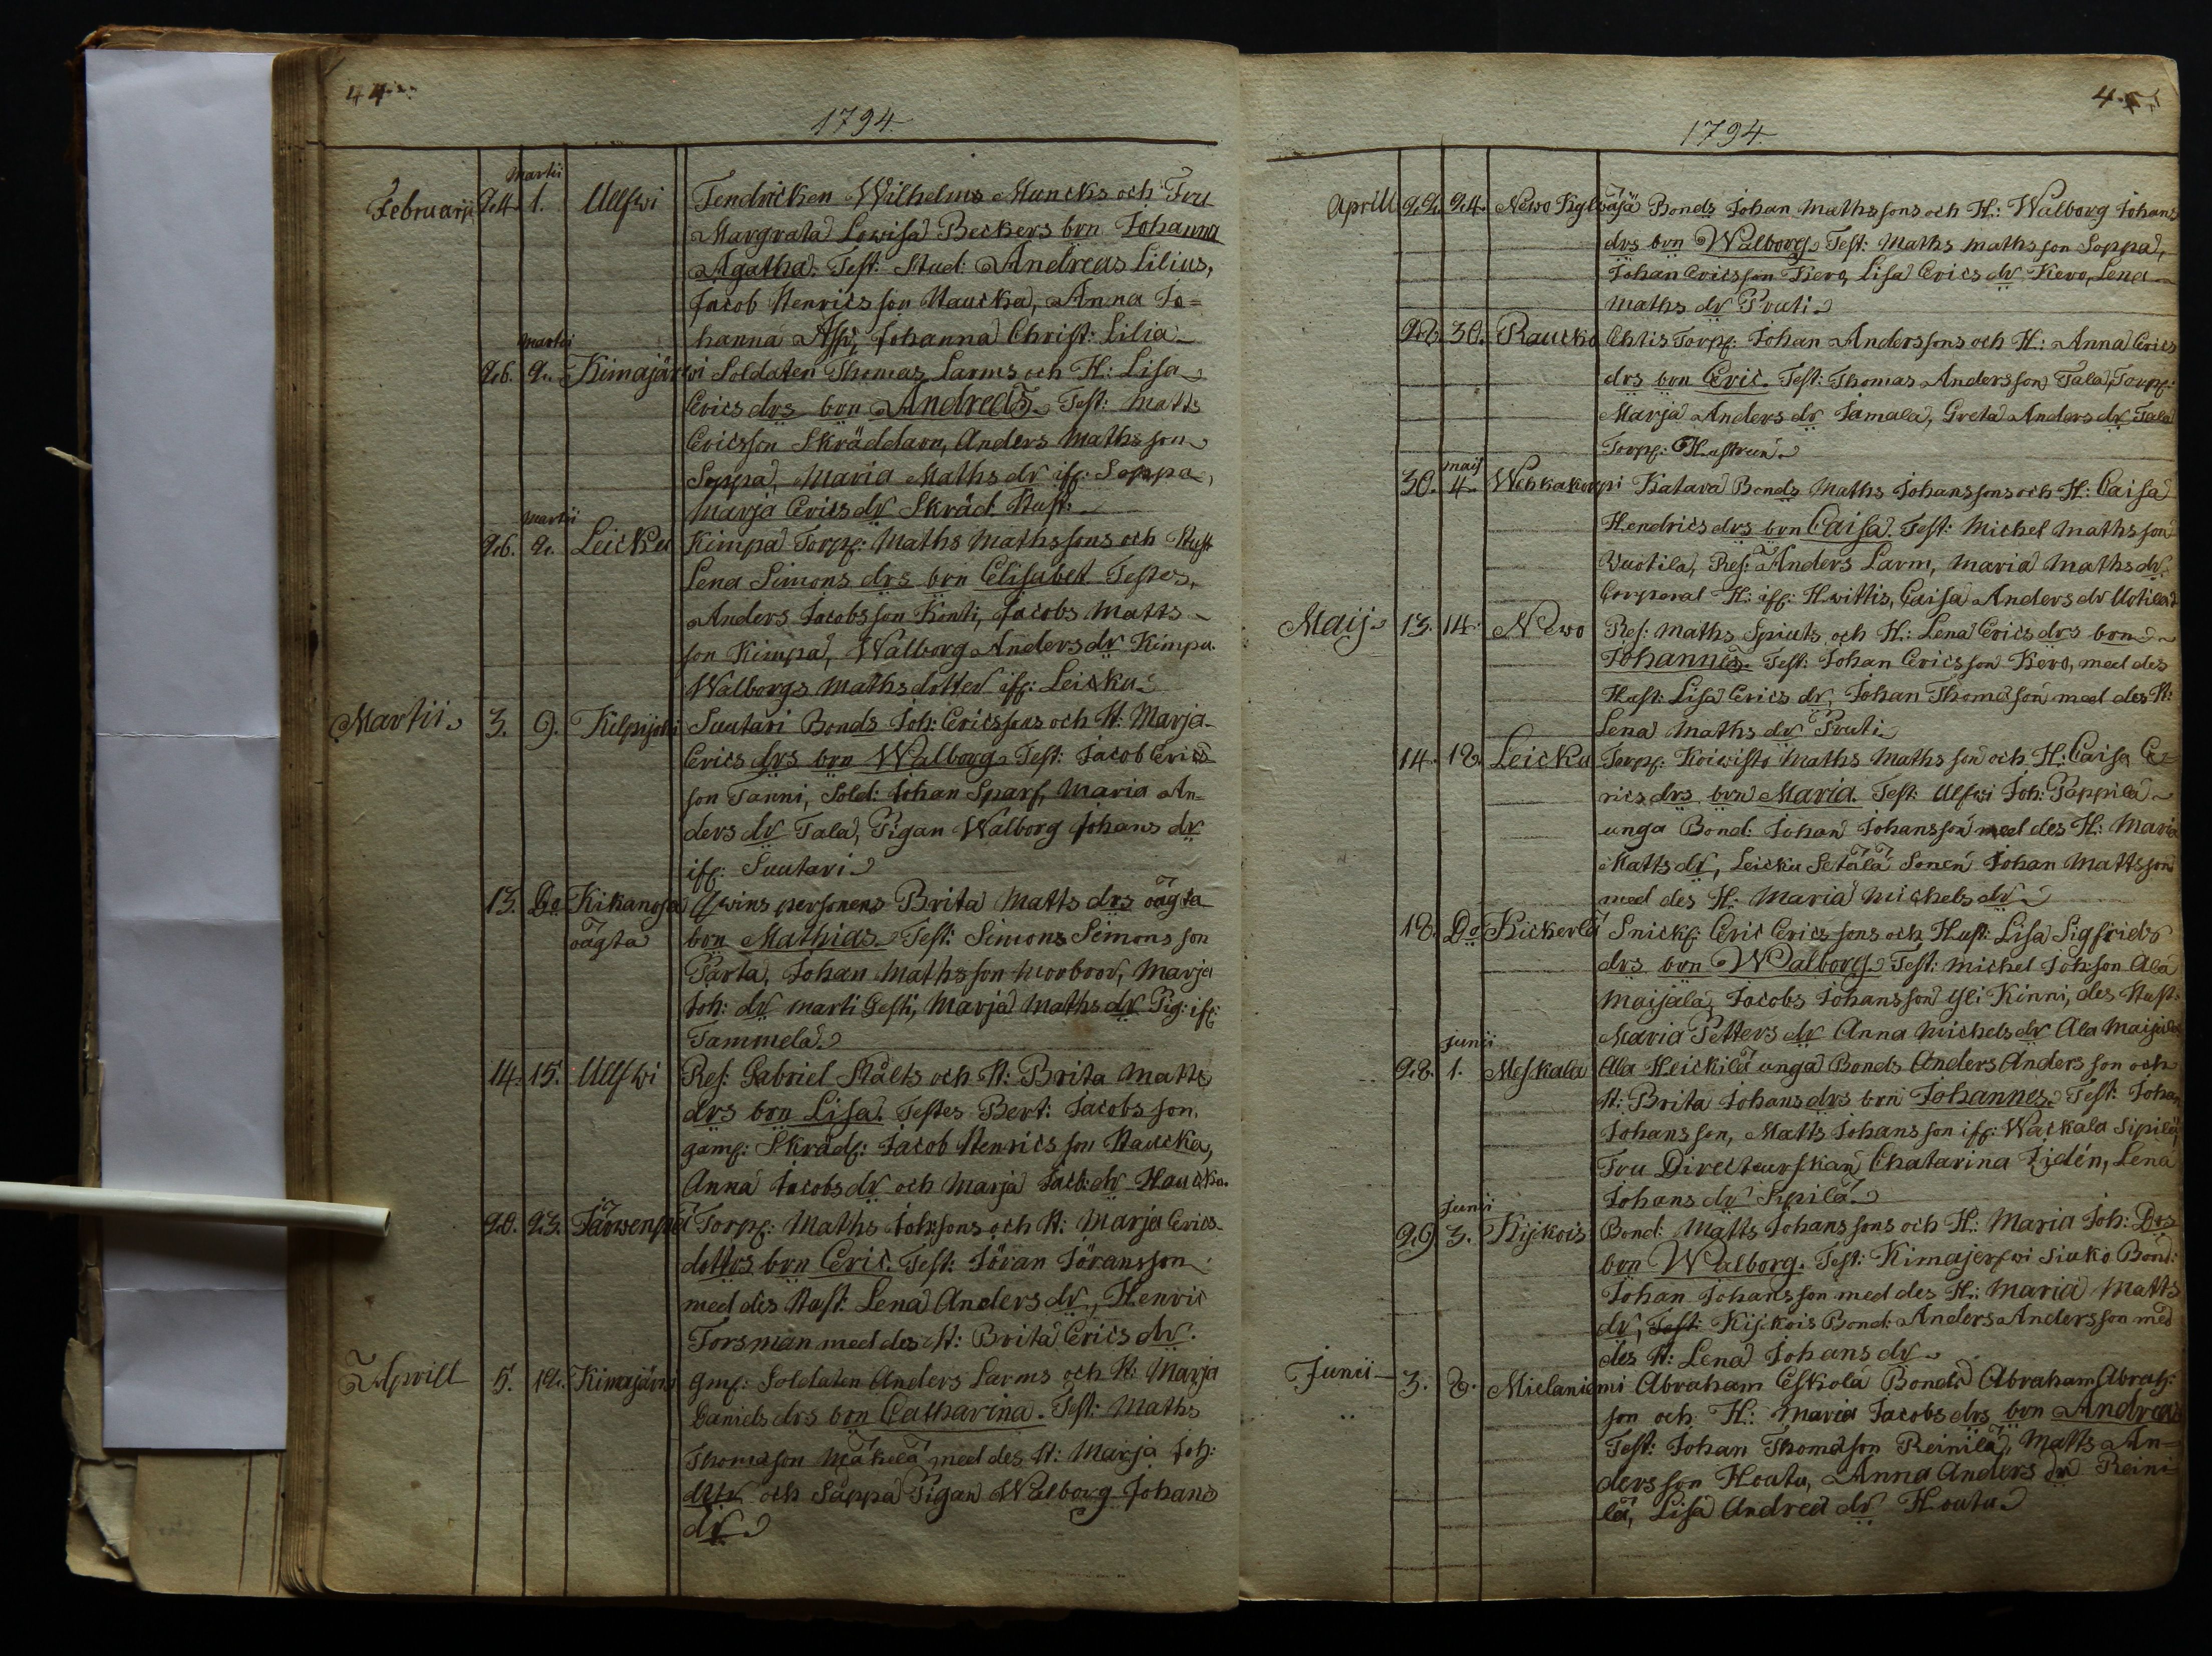 44.
1794.
Martii
Februarii 24. 1. Ullfwi Fendricken Wilhelms Muncks och Fru
Margrata Lowisa Beckers brn Johanna
Agatha. Test: Stud: Andreas Lilius,
Jacob Henricsson Haucka, Anna Jo=
hanna Asp, Johanna Christ: Lilia
Martii
26. 2. Kimajärwi Soldaten Thomas Larms och H: Lisa
Erics drs brn Andreas Test: Matts
Ericsson Skräddarn, Anders Mathsson
Soppa, Maria Maths dr ifr: Soppa,
Marja Erics dr Skräd. Hust:
Martii
26. 2. Leicku Kimpa Torpr: Maths Mathssons och Hust
Lena Simons drs brn Elisabet Testes,
Anders Jacobsson Konti, Jacobs Matts
son Kimpa, Walborg Anders dr Kimpa.
Walborgs Maths dotter ifr: Leicku
Martii 3. 9. Kilpijoki Suutari Bonds Joh: Ericssons och H: Marja
Erics drs brn Walborg Test: Jacob Erics
son Tanni, Sold: Johan Sparf, Maria An=
ders dr Tala, Pigan Walborg Johans dr
ifr: Suutari
13. Do Kikanoja Qwins personens Brita Matts drs oägta
oägta brn Mathias. Test: Simons Simons son
Parta, Johan Mathsson Morbror, Marja
Joh: dr Marti Gesti, Marja Maths dr Pig: ifr:
Tammela
14. 15. Ullfwi Res: Gabriel Stålts och H: Brita Matts
drs brn Lisa. Testes Bert: Jacobsson.
gamr: Skrädr: Jacob Henricsson Haucka,
Anna Jacobs dr och Marja Jacb: dr Haucka.
20. 23. Järwenpä Torpr: Maths Johssons och H: Marja Erics
dotters brn Eric. Test: Jöran Jöransson
med des Hust: Lena Anders dr, Henric
Forsman med des H: Brita Erics dr.
Aprill 5. 12. Kimajärwi gmr: Soldaten Anders Larms och H: Marja
Daniels drs brn Catharina. Test: Maths
Thomasson Mäkelä med des H: Marja Joh:
dttr och Sappa Pigan Walborg Johans
dr
45.
1794.
Aprill 22. 24. Newo Kylwäjä Bonds Johan Mathssons och H: Walborg Johans
drs brn Walborg. Test: Maths Mathsson Soppa,
Johan Ericsson Kero, Lisa Erics dr Kero, Lena
Maths dr Pruti
28. 30. Raucko Ehtis Torpr: Johan Anderssons och H: Anna Erics
drs brn Eric. Test: Thomas Andersson Tala, Torpr:
Marja Anders dr Jamala, Greta Anders dr Tala
Torpr: Hustrun
maij
30. 4. Wehkakorpi Katava Bonds Maths Johanssons och H: Caisa
Hendrics drs brn Caisa. Test: Michel Mathsson
Wuotila, Res: Anders Larm, Maria Maths dr
Corporal H: ifr: Hwittis, Caisa Anders dr Uotila
Maij 13. 14. Newo Res: Maths Spiuts och H: Lena Erics drs brn
Johannes. Test: Johan Ericsson Kero, med des
Hust: Lisa Erics dr, Johan Thomasson med des H:
Lena Maths dr Pruti
14. 18. Leicku Torpr: Koiwisto Maths Mathsson och H: Caisa E=
rics drs brn Maria. Test: Ulfwi Joh: Pappila
unga Bond: Johan Johansson med des H: Maria
Matts dr, Leicku Setälä Sonen Johan Mattsson
med des H: Maria Michels dr
18. Do Kickerlä Snickr: Eric Ericssons och Hust: Lisa Sigfrids
drs brn Walborg. Test: Michel Johsson Ala
Maijala, Jacobs Johansson Yli Kinni, des Hust:
Maria Petters dr Anna Michels dr Ala Maijala
Junii
28. 1. Meskala Ala Heickilä unga Bonds Anders Andersson och
H: Brita Johans drs brn Johannes. Test: Johan
Johansson, Matts Johansson ifr: Wackala Sipilä,
Fru Directeurskan Chatarina Fidén, Lena
Johans dr Sipilä
Junii
29 3. Kijkois Bond: Matts Johanssons och H: Maria Joh: Drs
brn Walborg. Test: Kimajerfwi Siuko Bond:
Johan Johansson med des H: Maria Matts
dr, Test: Kijkois Bond: Anders Andersson med
des H: Lena Johans dr
Junii 3. 8. Mielaniemi Abraham Eskola Bonds Abraham Abrah:
son och H: Maria Jacobs drs brn Andreas
Test: Johan Thomasson Reinilä, Matts An=
dersson Houtu, Anna Anders dr Reini
lä, Lisa Andrea dr Houtu